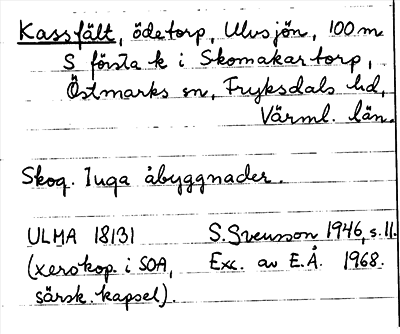 Kassfält, ödetorp, Ulvsjön, 100 m
S första k i Skomakartorp,
Östmarks sn, Fryksdals hd,
Värml. län.
Skog. Inga åbyggnader.
ULMA 18131 S. Svensson 1946, s. 11.
(xerokop. i SOA, Exc. av E.Å. 1968.
särsk. kapsel).